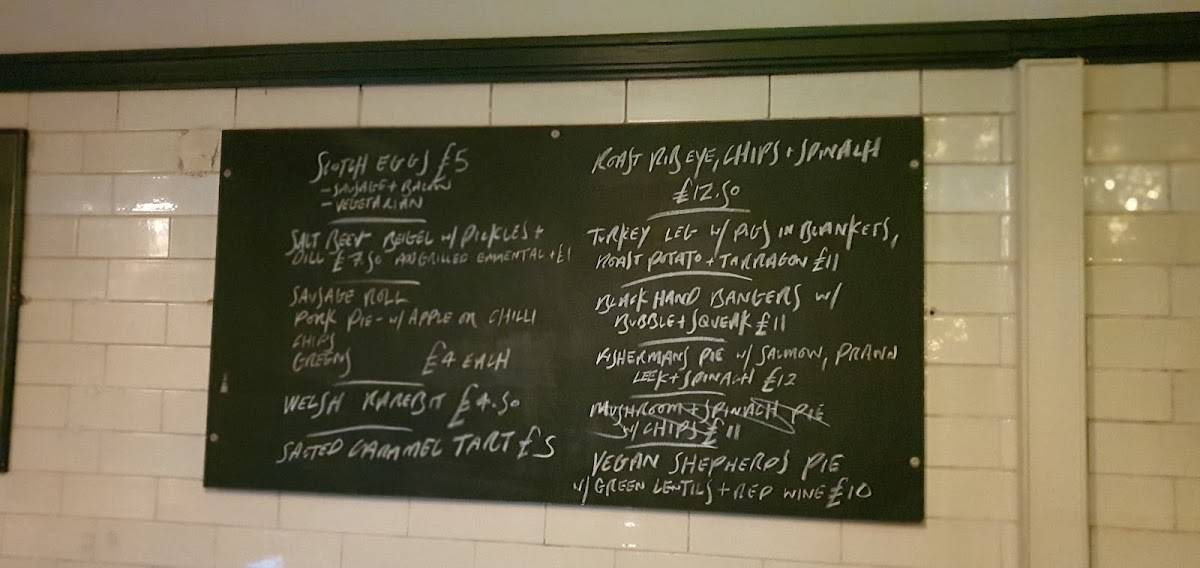 SCOTCH EGGS £5
- SAUSAGE + BACON
- VEGETARIAN
SALT BEEF BEIGEL W/ PICKLES +
DILL £7.50 ADD GRILLED EMMENTAL +£1
SAUSAGE ROLL
PORK PIE - W/ APPLE OR CHILLI
CHIPS
GREENS £4 EACH
WELSH RAREBIT £4.50
SALTED CARAMEL TART £5
ROAST RIB EYE, CHIPS + SPINACH
£12.50
TURKEY LEG W/ PIGS IN BLANKETS,
ROAST POTATO + TARRAGON £11
BLACKHAND BANGERS W/
BUBBLE + SQUEAK £11
FISHERMANS PIE W/ SALMON, PRAWN
LEEK + SPINACH £12
MUSHROOM + SPINACH PIE
W/ CHIPS £11
VEGAN SHEPHERDS PIE
W/ GREEN LENTILS + RED WINE £10